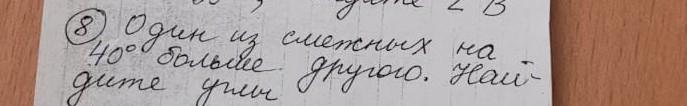 дите ∠ В
⑧ Один из смежных на
40° больше другого. Най-
дите углы